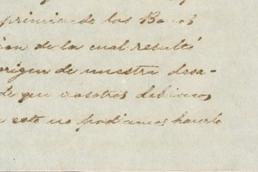 de los Ba
ion de la cual resultó
origen de nuestra desa-
de que nosotros debiamos
esto no podiamos hacerlo